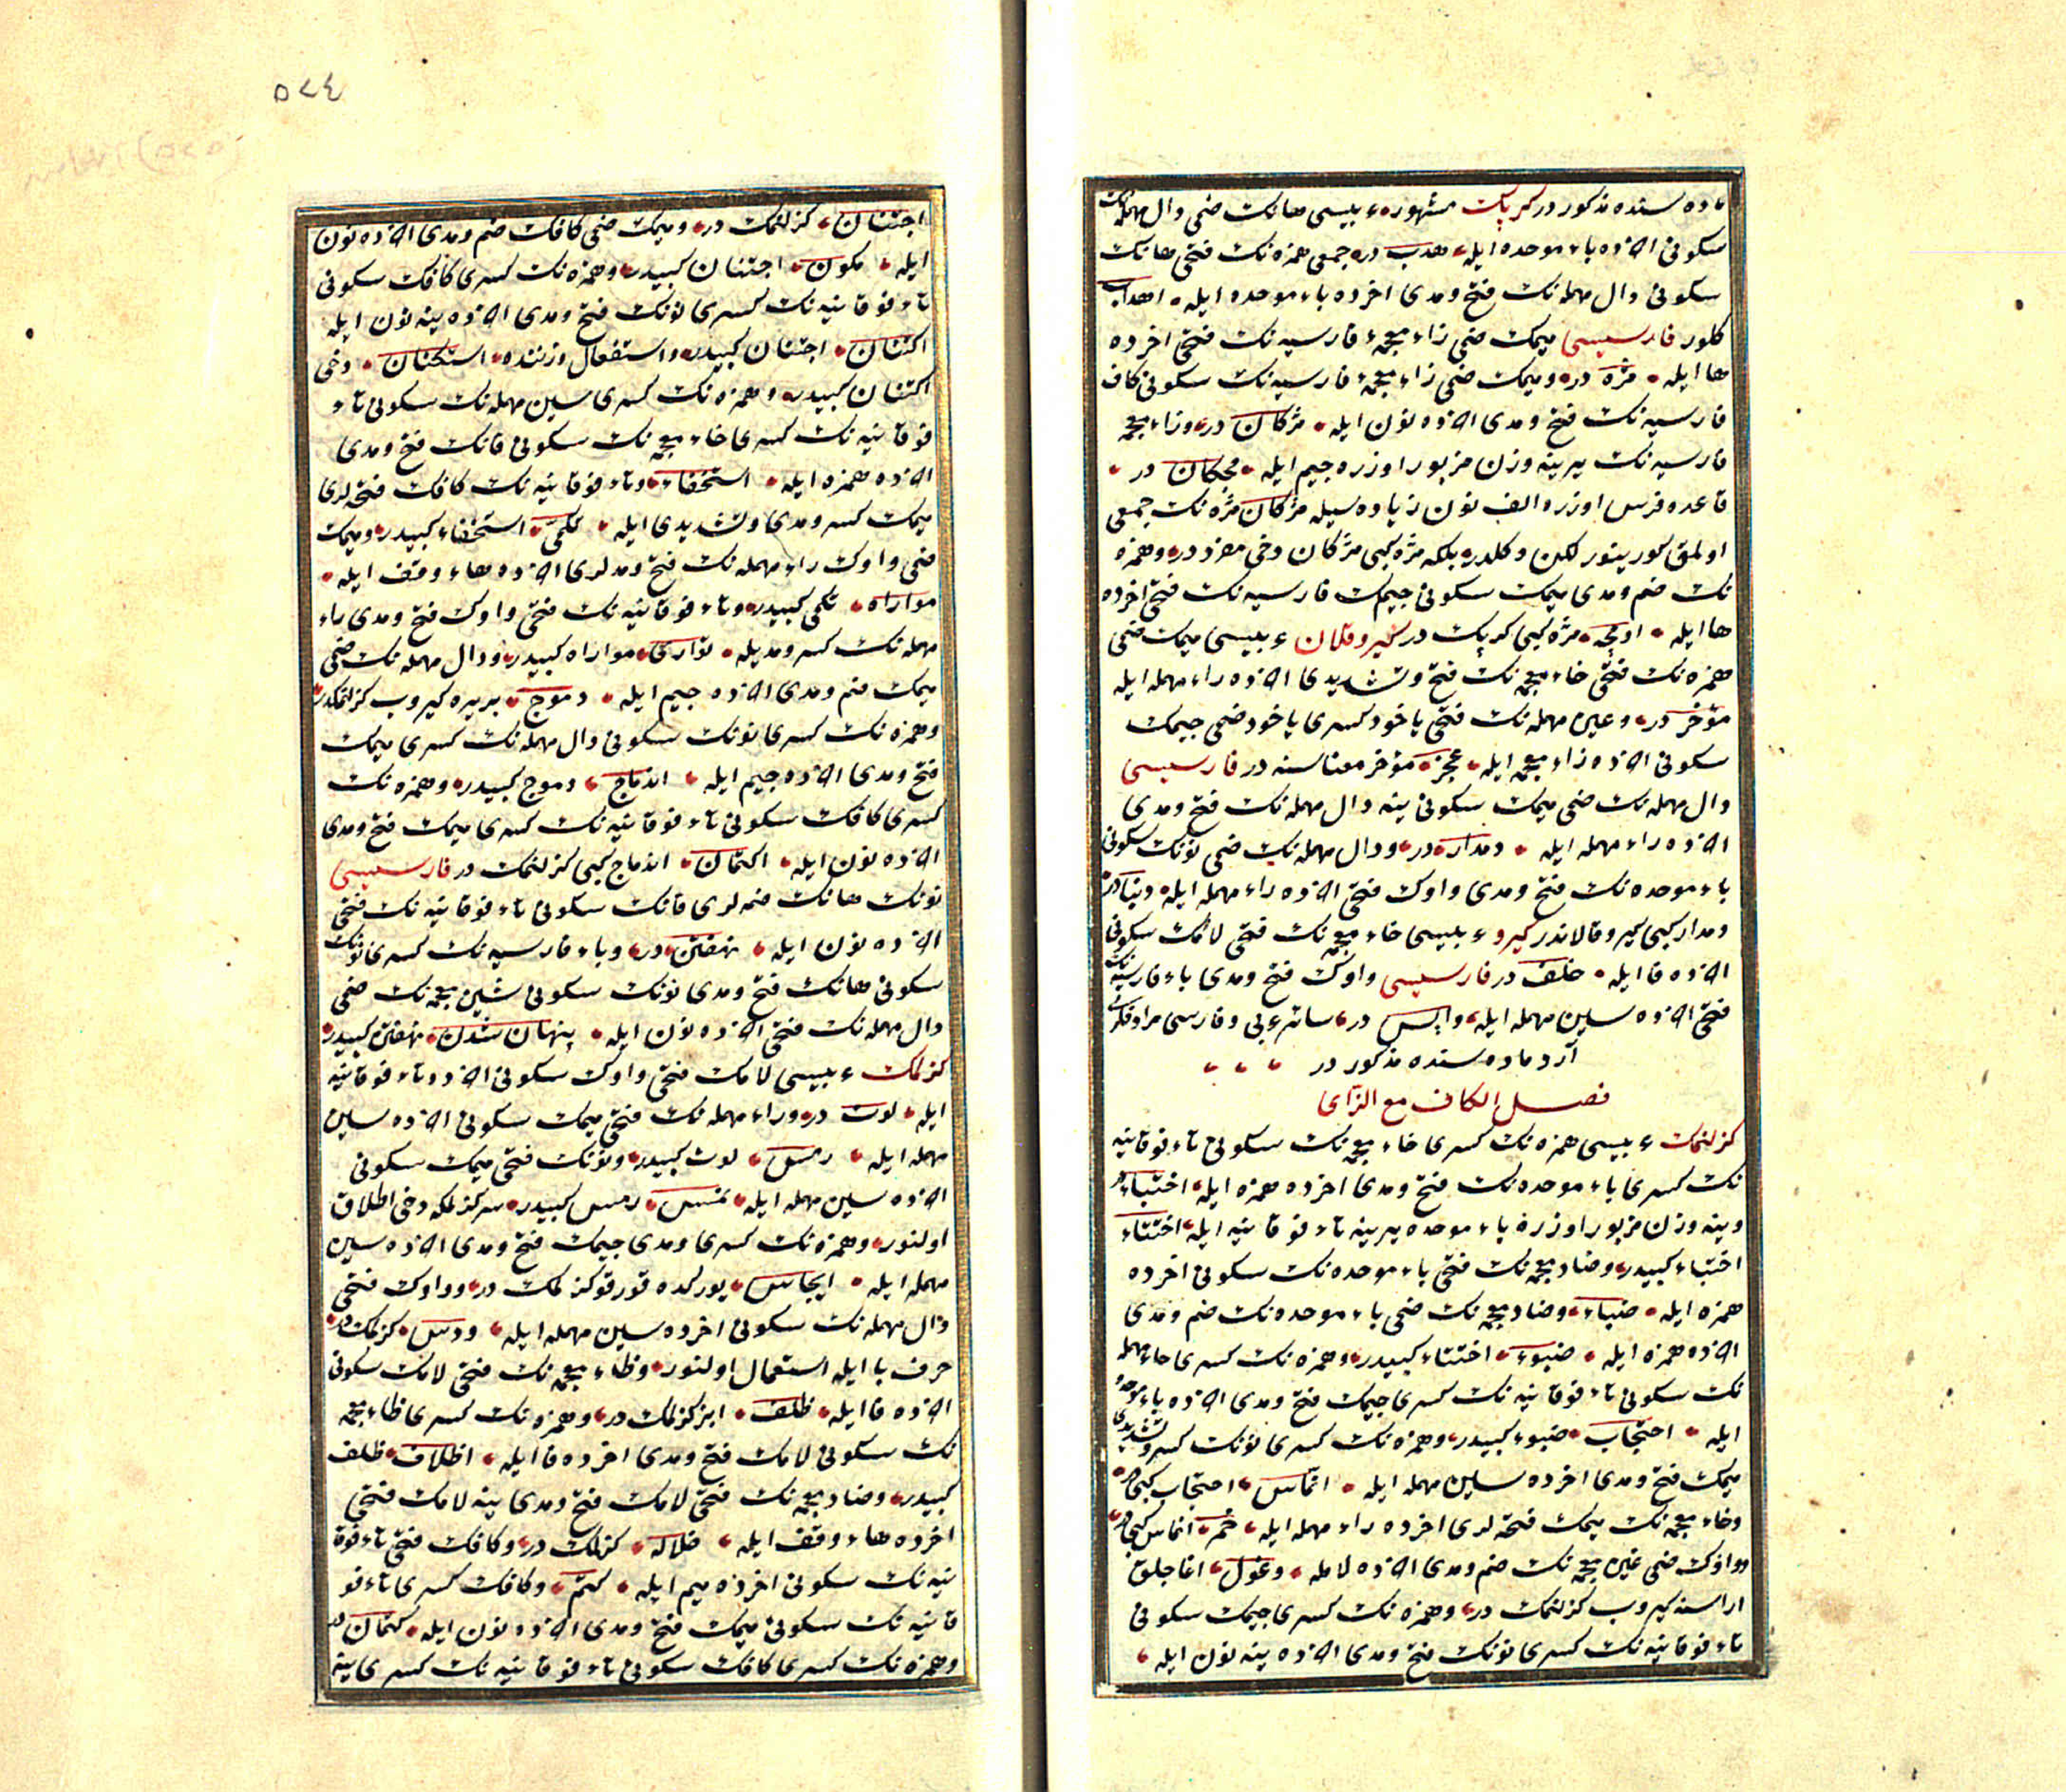 ماده سنده مذكور در كربك مشهوره عربيسى هانك ضمى دال مهمله نك
سكونى اخرده باء موحده ايله هدب در جمعى همزه نك فتحى هانك
سكونى دال مهمله نك فتح ومدى اخرده باء موحده ايله اهداب
كلور فارسيسى ميمك ضمى زاء معجمهٔ فارسيه نك فتحى اخرده
ها ايله مژه در وميمك ضمى زاء معجمهٔ فارسيه نك سكونى كاف
فارسيه نك فتح ومدى اخرده نون ايله مژكان در وزاء معجمه
فارسيه نك يرينه وزن مزبور اوزره جيم ايله مجكان در
قاعده فرس اوزره الف نون زياده سيله مژكان مژه نك جمعى
اولمق كورينور لكن دكلدر بلكه مژه كبى مژكان دخى مفرد در وهمزه
نك ضم ومدى ميمك سكونى جيمك فارسيه نك فتحى اخرده
ها ايله اومچه مژه كبى كربك در كيرو قلان عربيسى ميمك ضمى
همزه نك فتحى خاء معجمه نك فتح وتشديدى اخرده راء مهمله ايله
مؤخر در وعين مهمله نك فتحى ياخود كسرى ياخود ضمى جيمك
سكونى اخرده زاء معجمه ايله عجز مؤخر معناسنه در فارسيسى
دال مهمله نك ضمى ميمك سكونى ينه دال مهمله نك فتح ومدى
اخرده راء مهمله ايله دمدار در ودال مهمله نك ضمى نونك سكونى
باء موحده نك فتح ومدى واوك فتحى اخرده راء مهمله ايله
دمدار كبى كيرو قالاندر كيرو عربيسى خاء معجمه نك فتحى لامك سكونى
اخرده فا ايله خلف در فارسيسى واوك فتح ومدى باء فارسيه نك
فتحى اخرده سين مهمله ايله واپس در سائر عربى وفارسى مرادفلرى
آرد ماده سنده مذكور در
فصل الكاف مع الزاى
كزلنمك عربيسى همزه نك كسرى خاء معجمه نك سكونى تاء فوقانيه
نك كسرى باء موحده نك فتح ومدى اخرده همزه ايله اختباء در
وينه وزن مزبور اوزره باء موحده يرينه تاء فوقانيه ايله اختتاء
اختباء كبيدر وضاد معجمه نك فتحى باء موحده نك سكونى اخرده
همزه ايله ضباء وضاد معجمه نك ضمى باء موحده نك ضم ومدى
اخرده همزه ايله ضبوء اختتاء كبيدر وهمزه نك كسرى حاء مهمله
نك سكونى تاء فوقانيه نك كسرى جيمك فتح ومدى اخرده باء موحده
ايله احتجاب ضبوء كبيدر وهمزه نك كسرى نونك كسر وتشديدى
ميمك فتح ومدى اخرده سين مهمله ايله انماس احتجاب كبى در
وخاء معجمه نك ميمك فتحه لرى اخرده راء مهمله ايله خمر انماس كبى در
وواوك ضمى غين معجمه نك ضم ومدى اخرده لامله وغول اغاجلق
اراسنه كيروب كزلنمك در وهمزه نك كسرى جيمك سكونى
تاء فوقانيه نك كسرى نونك فتح ومدى اخرده ينه نون ايله
٥٧٤
اجتنان كزلنمك در وميمك ضمى كافك ضم ومدى اخرده نون
ايله مكون اجتنان كبيدر وهمزه نك كسرى كافك سكونى
تاء فوقانيه نك كسرى نونك فتح ومدى اخرده ينه نون ايله
اكتنان اجتنان كبيدر واستفعال وزننده استكنان دخى
اكتنان كبيدر وهمزه نك كسرى سين مهمله نك سكونى تاء
فوقانيه نك كسرى خاء معجمه نك سكونى فانك فتح ومدى
اخرده همزه ايله استخفاء وتاء فوقانيه نك كافك فتحه لرى
ميمك كسر ومدى وتشديدى ايله تكمى استخفاء كبيدر وميمك
ضمى واوك راء مهمله نك فتح ومدلرى اخرده هاء وقف ايله
مواراه تكمى كبيدر وتاء فوقانيه نك فتحى واوك فتح ومدى راء
مهمله نك كسر ومديله توارى مواراه كبيدر ودال مهمله نك ضمى
ميمك ضم ومدى اخرده جيم ايله دموج بريره كيروب كزلنمكدر
وهمزه نك كسرى نونك سكونى دال مهمله نك كسرى ميمك
فتح ومدى اخرده جيم ايله اندماج دموج كبيدر وهمزه نك
كسرى كافك سكونى تاء فوقانيه نك كسرى ميمك فتح ومدى
اخرده نون ايله اكتمان اندماج كبى كزلنمك در فارسيسى
نونك هانك ضمه لرى فانك سكونى تاء فوقانيه نك فتحى
اخرده نون ايله نهفتن در وباء فارسيه نك كسرى نونك
سكونى هانك فتح ومدى نونك سكونى شين معجمه نك ضمى
دال مهمله نك فتحى اخرده نون ايله پنهان شدن نهفتن كبيدر
كزلمك عربيسى لامك فتحى واوك سكونى اخرده تاء فوقانيه
ايله لوت در وراء مهمله نك فتحى ميمك سكونى اخرده سين
مهمله ايله رمس لوت كبيدر ونونك فتحى ميمك سكونى
اخرده سين مهمله ايله نمس رمس كبيدر سر كزلمكه دخى اطلاق
اولنور وهمزه نك كسرى ومدى جيمك فتح ومدى اخرده سين
مهمله ايله ايجاس يوركده قورقو كزلمك در وواوك فتحى
دال مهمله نك سكونى اخرده سين مهمله ايله ودس كزلمك در
حرف با ايله استعمال اولنور وظاء معجمه نك فتحى لامك سكونى
اخرده فا ايله ظلف ايز كزلمك در وهمزه نك كسرى ظاء معجمه
نك سكونى لامك فتح ومدى اخرده فا ايله اظلاف ظلف
كبيدر وضاد معجمه نك فتحى لامك فتح ومدى ينه لامك فتحى
اخرده هاء وقف ايله ضلاله كزلمك در وكافك فتحى تاء فوقا
نيه نك سكونى اخرده ميم ايله كتم وكافك كسرى تاء فو
قانيه نك سكونى ميمك فتح ومدى اخرده نون ايله كتمان در
وهمزه نك كسرى كافك سكونى تاء فوقانيه نك كسرى ينه